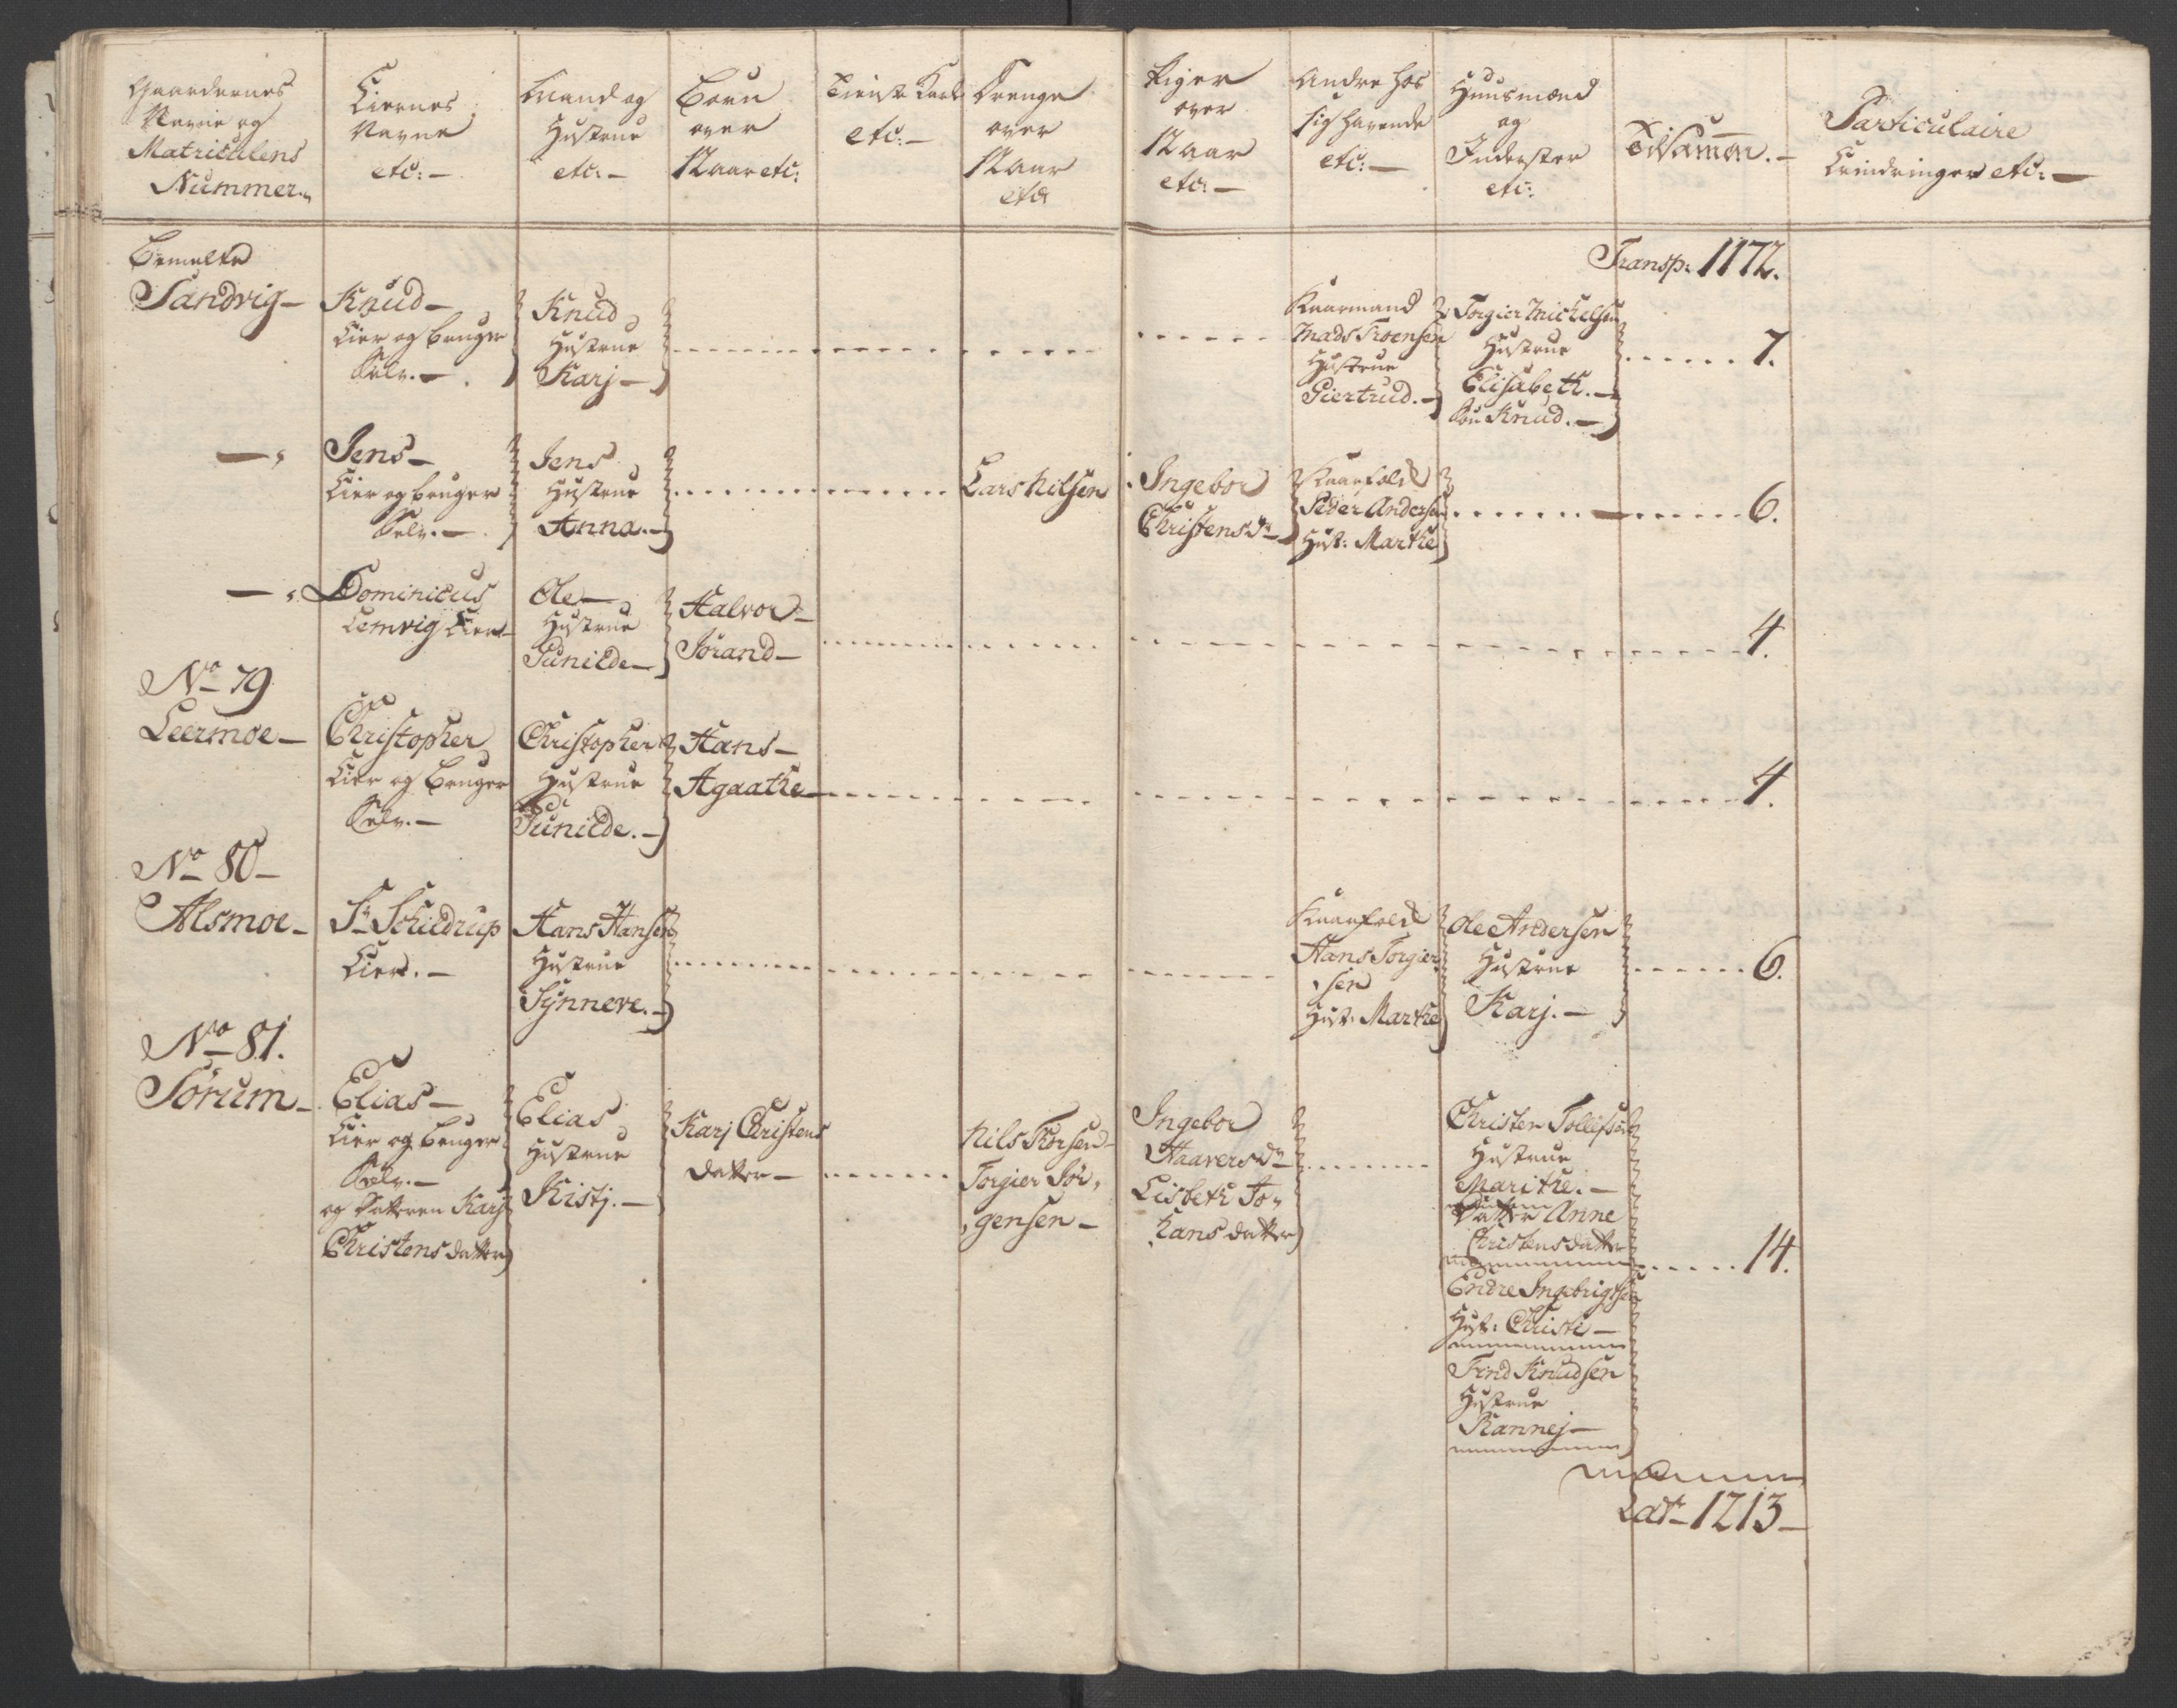 Gaardernes
Navne og
Matriculens
Nummer.
Eiernes
Navne
etc: —
Mand og
Hustrue
etc: —
Børn
over
12 aar etc:
Tieniste Karle
etc: —
Drenge
over
12 aar
etc:
Piger
over
12 aar
etc: —
Andre hos
sig havende
etc: —
Huusmænd
og
Inderster
etc:
Tilsamm̄en. —
Particulaire
Erindringer etc: —
Transp: 1172.
Bemelte
Sandvig —
Knud —
Eier og bruger
Selv. —
Knud
Hustrue
Karj —
Kaarmand
Mads Troensen
Hustrue
Giertrud. —
Torgier Michelsen
Hustrue
Elisabeth. —
Søn Knud. —
7.
—
Jens —
Eier og bruger
Selv. —
Jens
Hustrue
Anna. —
Lars Nilsen
Ingebor
Christensdr
Kaarfolk
Peder Andersen
Hust: Marthe
6.
—
Dominicus
Lemvig Eier —
Ole —
Hustrue
Gunilde —
Halvor —
Jørand —
4.
No 79
Leermoe —
Christopher
Eier og bruger
Selv. —
Christopher
Hustrue
Gunilde. —
Hans —
Agaathe —
4.
No 80 —
Alsmoe —
Sr Schildrup
Eier. —
Hans Hansen
Hustrue
Synneve. —
Kaarfolk
Hans Torgier
sen
Hust: Marthe
Ole Andersen
Hustrue
Karj. —
6.
No 81.
Sørum —
Elias —
Eier og bruger
Selv. —
og Datteren Karj
Christensdatter
Elias
Hustrue
Kistj. —
Karj Christens
datter —
Nils Thorsen —
Torgier Jør,
gensen —
Ingebor
Haaversdr
Lisbeth Jo,
hansdatter
Christen Tollefsen
Hustrue
Marithe. —
Datter Anne
Christensdatter
Endre Ingebrigtsen
Hust: Christi —
Find Knudsen
Hustrue
Rannej —
14.
Lat. 1213 —